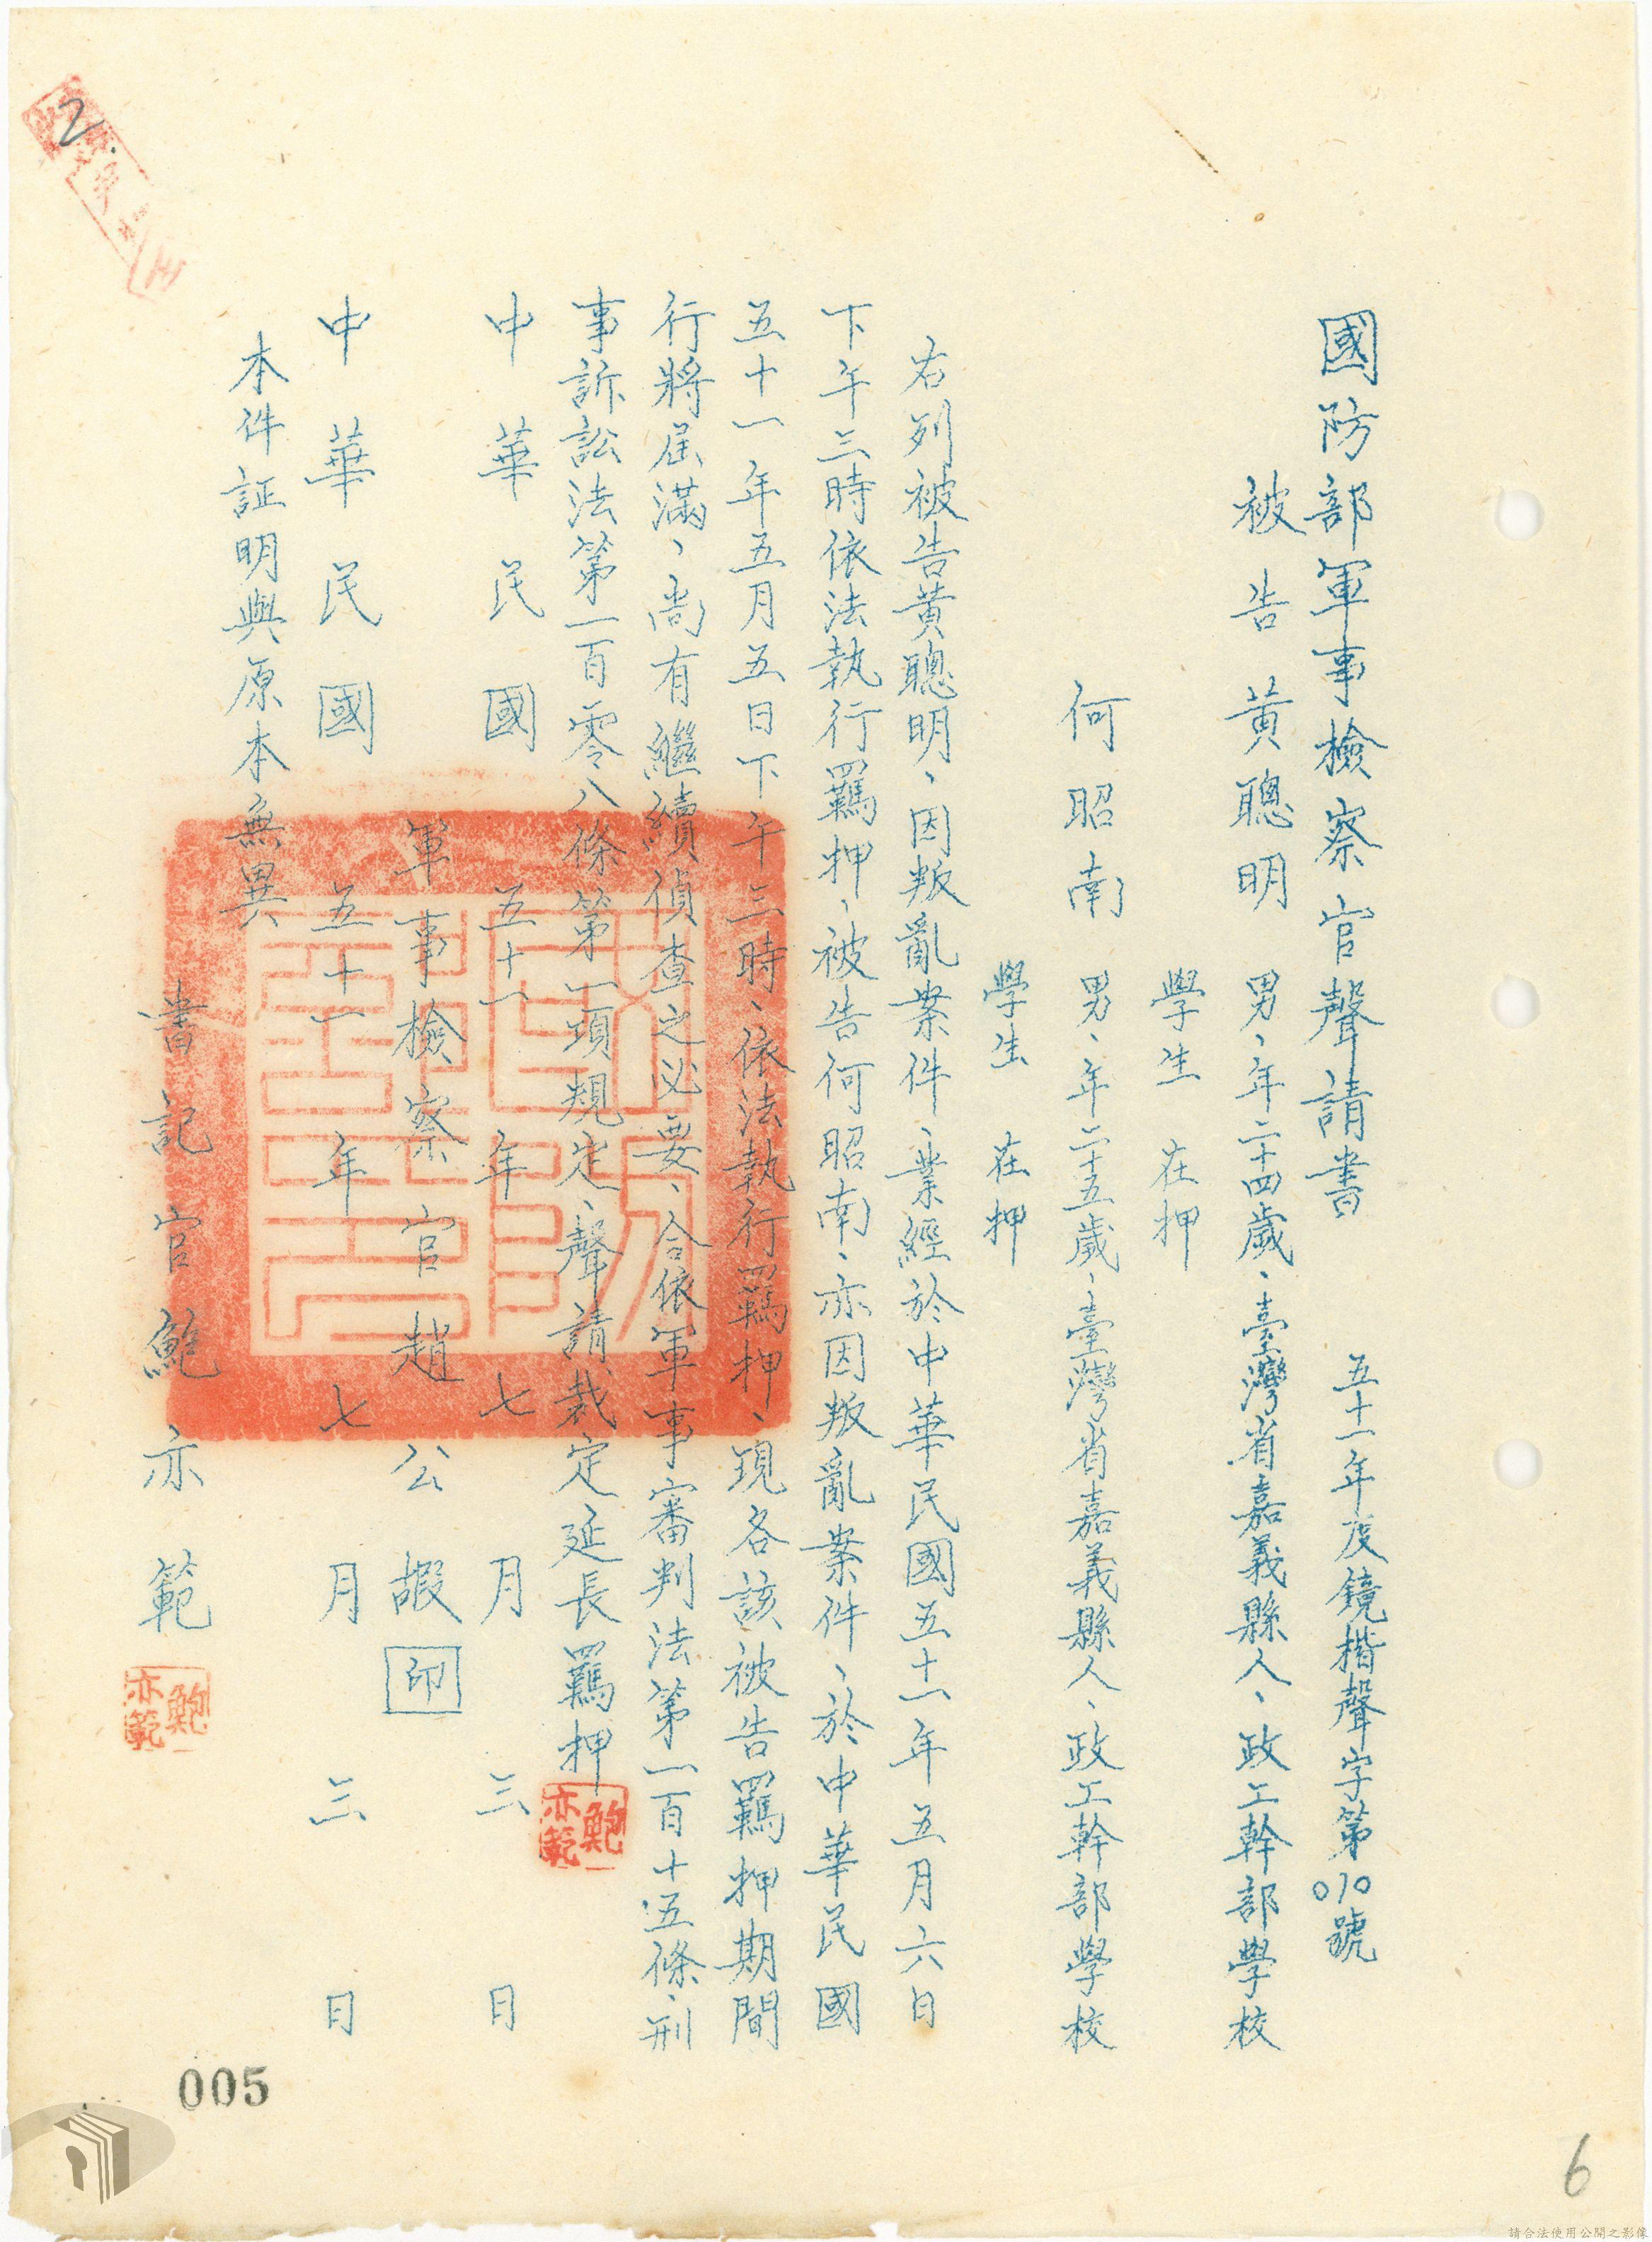 國防部軍事檢察官聲請書
五十一年度鏡楷聲字第010號
被告 黃聰明 男、年二十四歲、臺灣省嘉義縣人、政工幹部學校
學生 在押
何昭南 男、年二十五歲、臺灣省嘉義縣人、政工幹部學校
學生 在押
右列被告黃聰明、因叛亂案件、業經於中華民國五十一年五月六日
下午三時依法執行羈押、被告何昭南、亦因叛亂案件、於中華民國
五十一年五月五日下午三時、依法執行羈押、現各該被告羈押期間
行將屆滿、尚有繼續偵查之必要、合依軍事審判法第一百十五條、刑
事訴訟法第一百零八條第一項規定、聲請裁定延長羈押
鮑亦範
中華民國五十一年七月三日
軍事檢察官趙公嘏 印
中華民國五十一年七月三日
本件証明與原本無異
書記官鮑亦範
鮑亦範
2.
005
6
請合法使用公開之影像